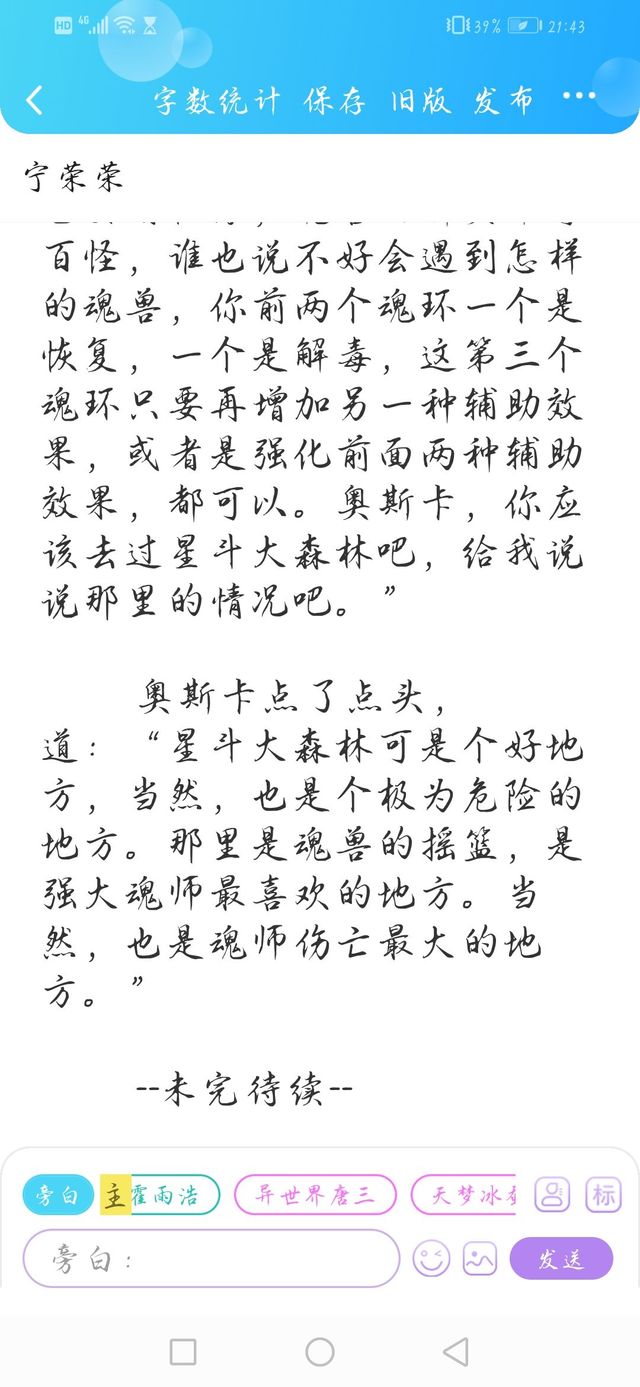 HD 4G 39% 21:43
字数统计 保存 旧版 发布 ···
宁荣荣
百怪，谁也说不好会遇到怎样
的魂兽，你前两个魂环一个是
恢复，一个是解毒，这第三个
魂环只要再增加另一种辅助效
果，或者是强化前面两种辅助
效果，都可以。奥斯卡，你应
该去过星斗大森林吧，给我说
说那里的情况吧。”
奥斯卡点了点头，
道：“星斗大森林可是个好地
方，当然，也是个极为危险的
地方。那里是魂兽的摇篮，是
强大魂师最喜欢的地方。当
然，也是魂师伤亡最大的地
方。”
--未完待续--
旁白 主 霍雨浩 异世界唐三 天梦冰 标
旁白： 发送